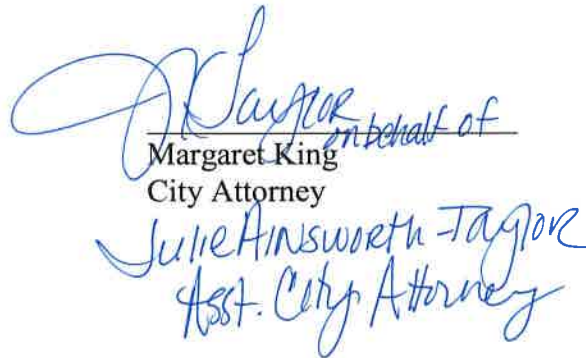 J Taylor
on behalf of
Margaret King
City Attorney
Julie Ainsworth-Taylor
Asst. City Attorney